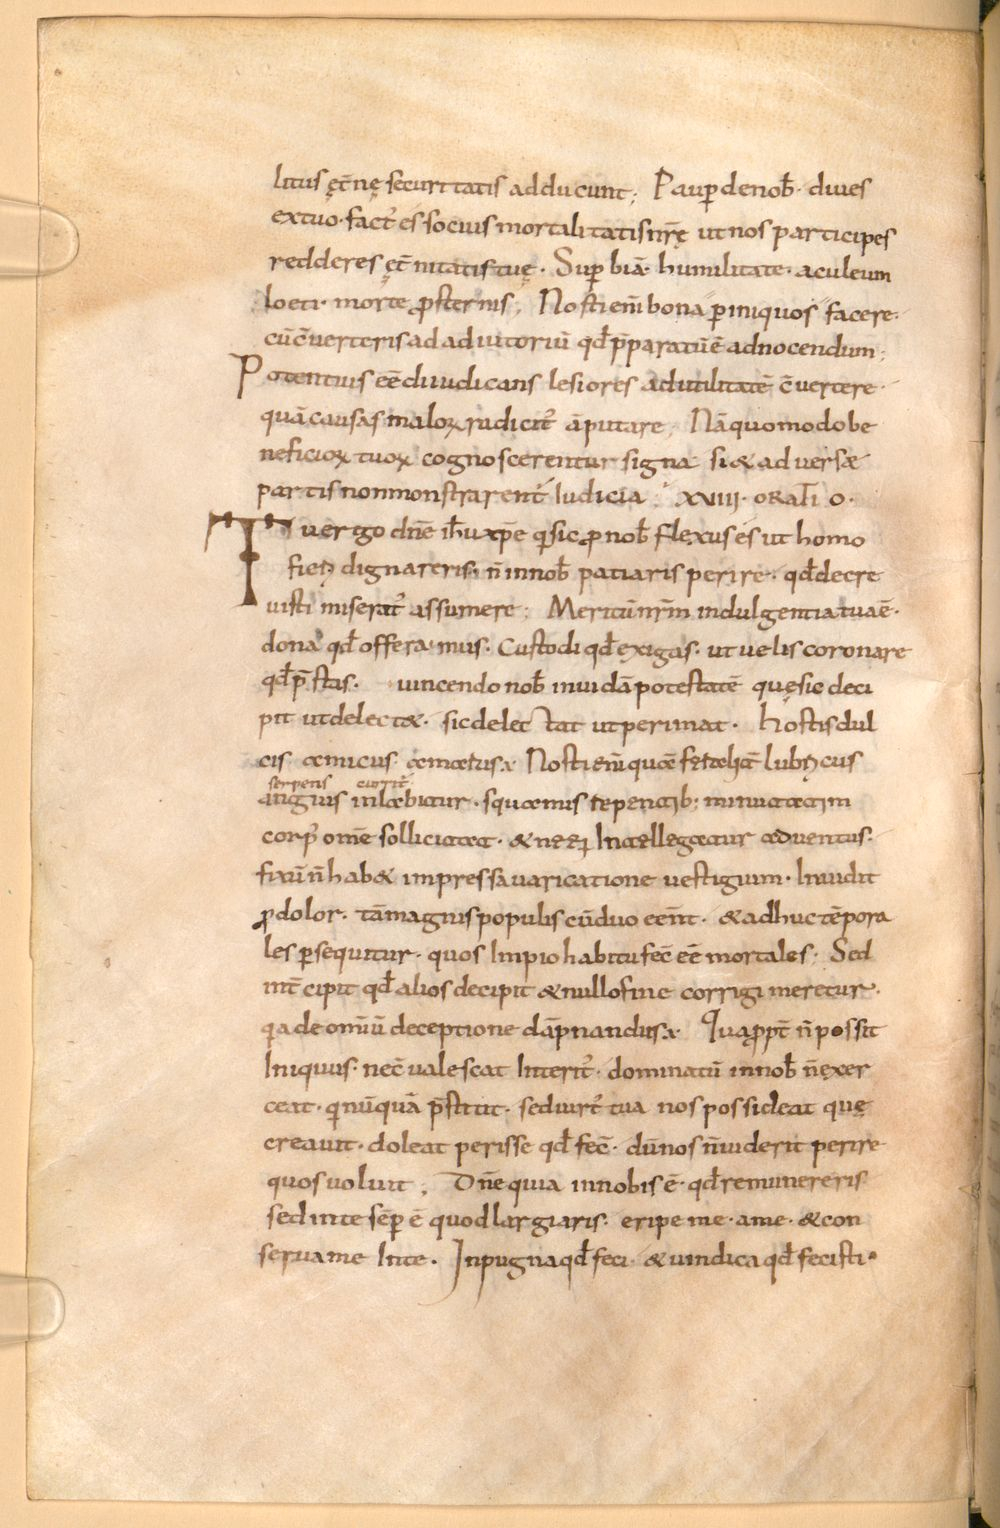 litus ęt̄nę securitatis adducunt; Paup̱ de nob̄· diues
extuo· fact᾽ es socius mortalitatis nr̄ę ut nos participes
redderes ęt̄nitatis tuę· Sup̱biā· humilitate· aculeum
loeti· morte ꝓsternis; Nosti eni̅ bona p̱ iniquos facere·
cū c̄uerteris ad adiutoriū qd̄ p̄paratū ē ad nocendum;
Potentius eē diiudicans lesiores ad utilitatē c̄uertere·
quā causas maloꝝ radicit᾽ āputare; Nā quomodo be
neficioꝝ tuoꝝ cognoscerentur signa si & aduersæ
partis non monstrarent᾽ Iudicia; XVIIII· ORATIO·
Tu ergo dn̄e ih̄u xp̄e q̱ sic ꝓ nob̄ flexus es ut homo
fieꝝ dignareris· n̄ in nob̄ patiaris perire· qd̄ decre
uisti miserat᾽ assumere; Meritū nr̄m indulgentia tua ē·
dona qd̄ offeramus· Custodi qd̄ exigas· ut uelis coronare
qd̄ p̄stas· uincendo nob̄ inuidā potestatē quę sic deci
pit ut delectæ· sic delectat ut perimat· Hostis dul
cis amicus amatus· Nosti eni̅ quā
serpens currit᾽
anguis inlabitur· squamis repentib; minutatim
corp᾽ omē sollicitat· & ne ei᾽ Intellegatur aduentus·
fixū n̄ hab& impressa uaricatione uestigium· Inuidit
ꝓ dolor· tā magnis populis cū duo eēnt· & adhuc tēpora
les p̱sequitur· quos Impio habitu fec̄ eē mortales; Sed
int̄cipit qd̄ alios decipit & nullo fine corrigi meretur·
q̱a de omiū deceptione dāpnandus· Quaꝓpt̄ n̄ possit
Iniquus· nec̄ ualescat Interit᾽· dominatū in nob̄ n̄ exer
ceat· q̱ nūquā p̄stitit· sed uirt᾽ tua nos possideat quę
creauit· doleat perisse qd̄ fec̄· dū nos n̄ uiderit perire
quos uoluit; Dn̄e quia in nobis ē· qd̄ remunereris
sed in te sēp̱ ē quod largiaris· eripe me· a me· & con
serua me Inte· Inpugna qd̄ feci· & uindica qd̄ fecisti·